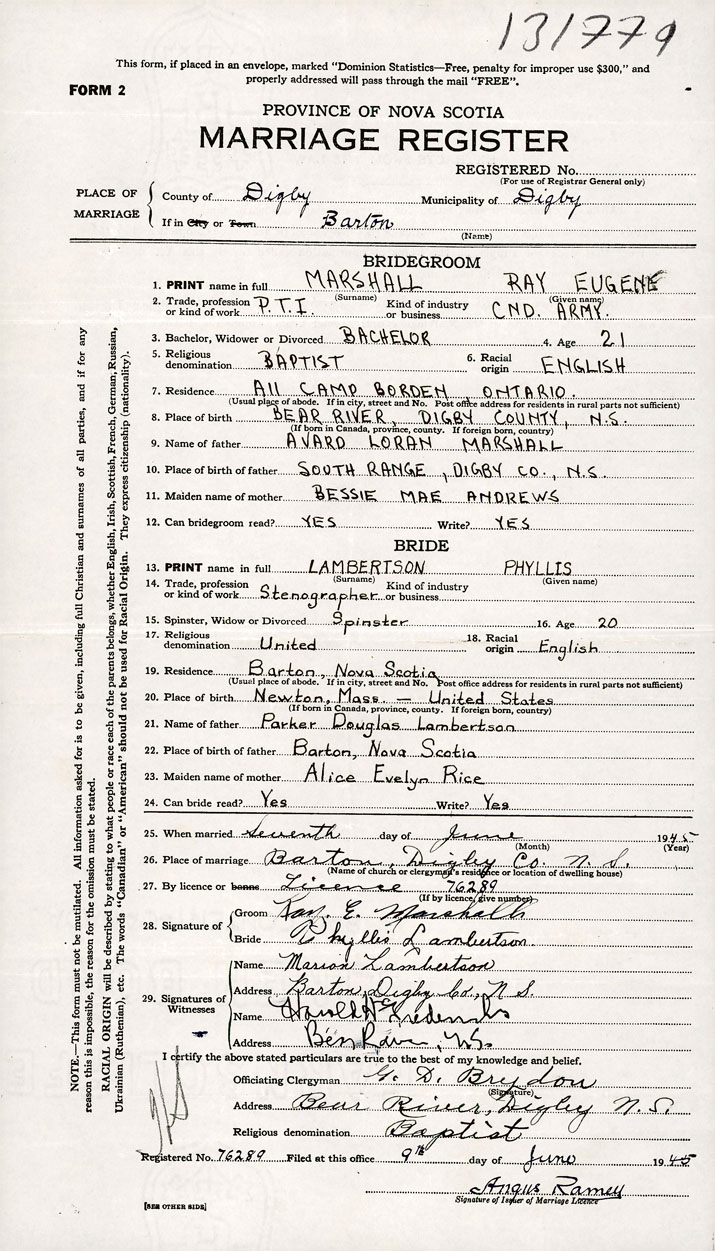 131779
This form, if placed in an envelope, marked "Dominion Statistics—Free, penalty for improper use $300," and
properly addressed will pass through the mail "FREE".
FORM 2
PROVINCE OF NOVA SCOTIA
MARRIAGE REGISTER
REGISTERED No.
(For use of Registrar General only)
PLACE OF MARRIAGE
County of Digby Municipality of Digby
If in City or Town Barton
(Name)
BRIDEGROOM
1. PRINT name in full MARSHALL RAY EUGENE
(Surname) (Given name)
2. Trade, profession or kind of work P.T.I. Kind of industry or business CND. ARMY.
3. Bachelor, Widower or Divorced BACHELOR 4. Age 21
5. Religious denomination BAPTIST 6. Racial origin ENGLISH
7. Residence A11 CAMP BORDEN ONTARIO.
(Usual place of abode. If in city, street and No. Post office address for residents in rural parts not sufficient)
8. Place of birth BEAR RIVER, DIGBY COUNTY, N.S.
(If born in Canada, province, county. If foreign born, country)
9. Name of father AVARD LORAN MARSHALL
10. Place of birth of father SOUTH RANGE, DIGBY CO., N.S.
11. Maiden name of mother BESSIE MAE ANDREWS
12. Can bridegroom read? YES Write? YES
BRIDE
13. PRINT name in full LAMBERTSON PHYLLIS
(Surname) (Given name)
14. Trade, profession or kind of work Stenographer Kind of industry or business
15. Spinster, Widow or Divorced Spinster 16. Age 20
17. Religious denomination United 18. Racial origin English
19. Residence Barton, Nova Scotia
(Usual place of abode. If in city, street and No. Post office address for residents in rural parts not sufficient)
20. Place of birth Newton, Mass. — United States
(If born in Canada, province, county. If foreign born, country)
21. Name of father Parker Douglas Lambertson
22. Place of birth of father Barton, Nova Scotia
23. Maiden name of mother Alice Evelyn Rice
24. Can bride read? Yes Write? Yes
25. When married seventh day of June 1945
(Month) (Year)
26. Place of marriage Barton, Digby Co. N. S.
(Name of church or clergyman's residence or location of dwelling house)
27. By licence or banns Licence 76289
(If by licence, give number)
28. Signature of
Groom Ray. E. Marshall
Bride Phyllis Lambertson
29. Signatures of Witnesses
Name Marion Lambertson
Address Barton, Digby Co., N.S.
Name Harold
Address River, N.S.
I certify the above stated particulars are true to the best of my knowledge and belief.
Officiating Clergyman G. D. Brydon
(Signature)
Address Bear River, Digby N.S.
Religious denomination Baptist
Registered No. 76289 Filed at this office 9th day of June 1945
Angus Ramey
Signature of Issuer of Marriage Licence
[SEE OTHER SIDE]
NOTE.—This form must not be mutilated. All information asked for is to be given, including full Christian and surnames of all parties, and if for any
reason this is impossible, the reason for the omission must be stated.
RACIAL ORIGIN will be described by stating to what people or race each of the parents belongs, whether English, Irish, Scottish, French, German, Russian,
Ukrainian (Ruthenian), etc. The words "Canadian" or "American" should not be used for Racial Origin. They express citizenship (nationality).